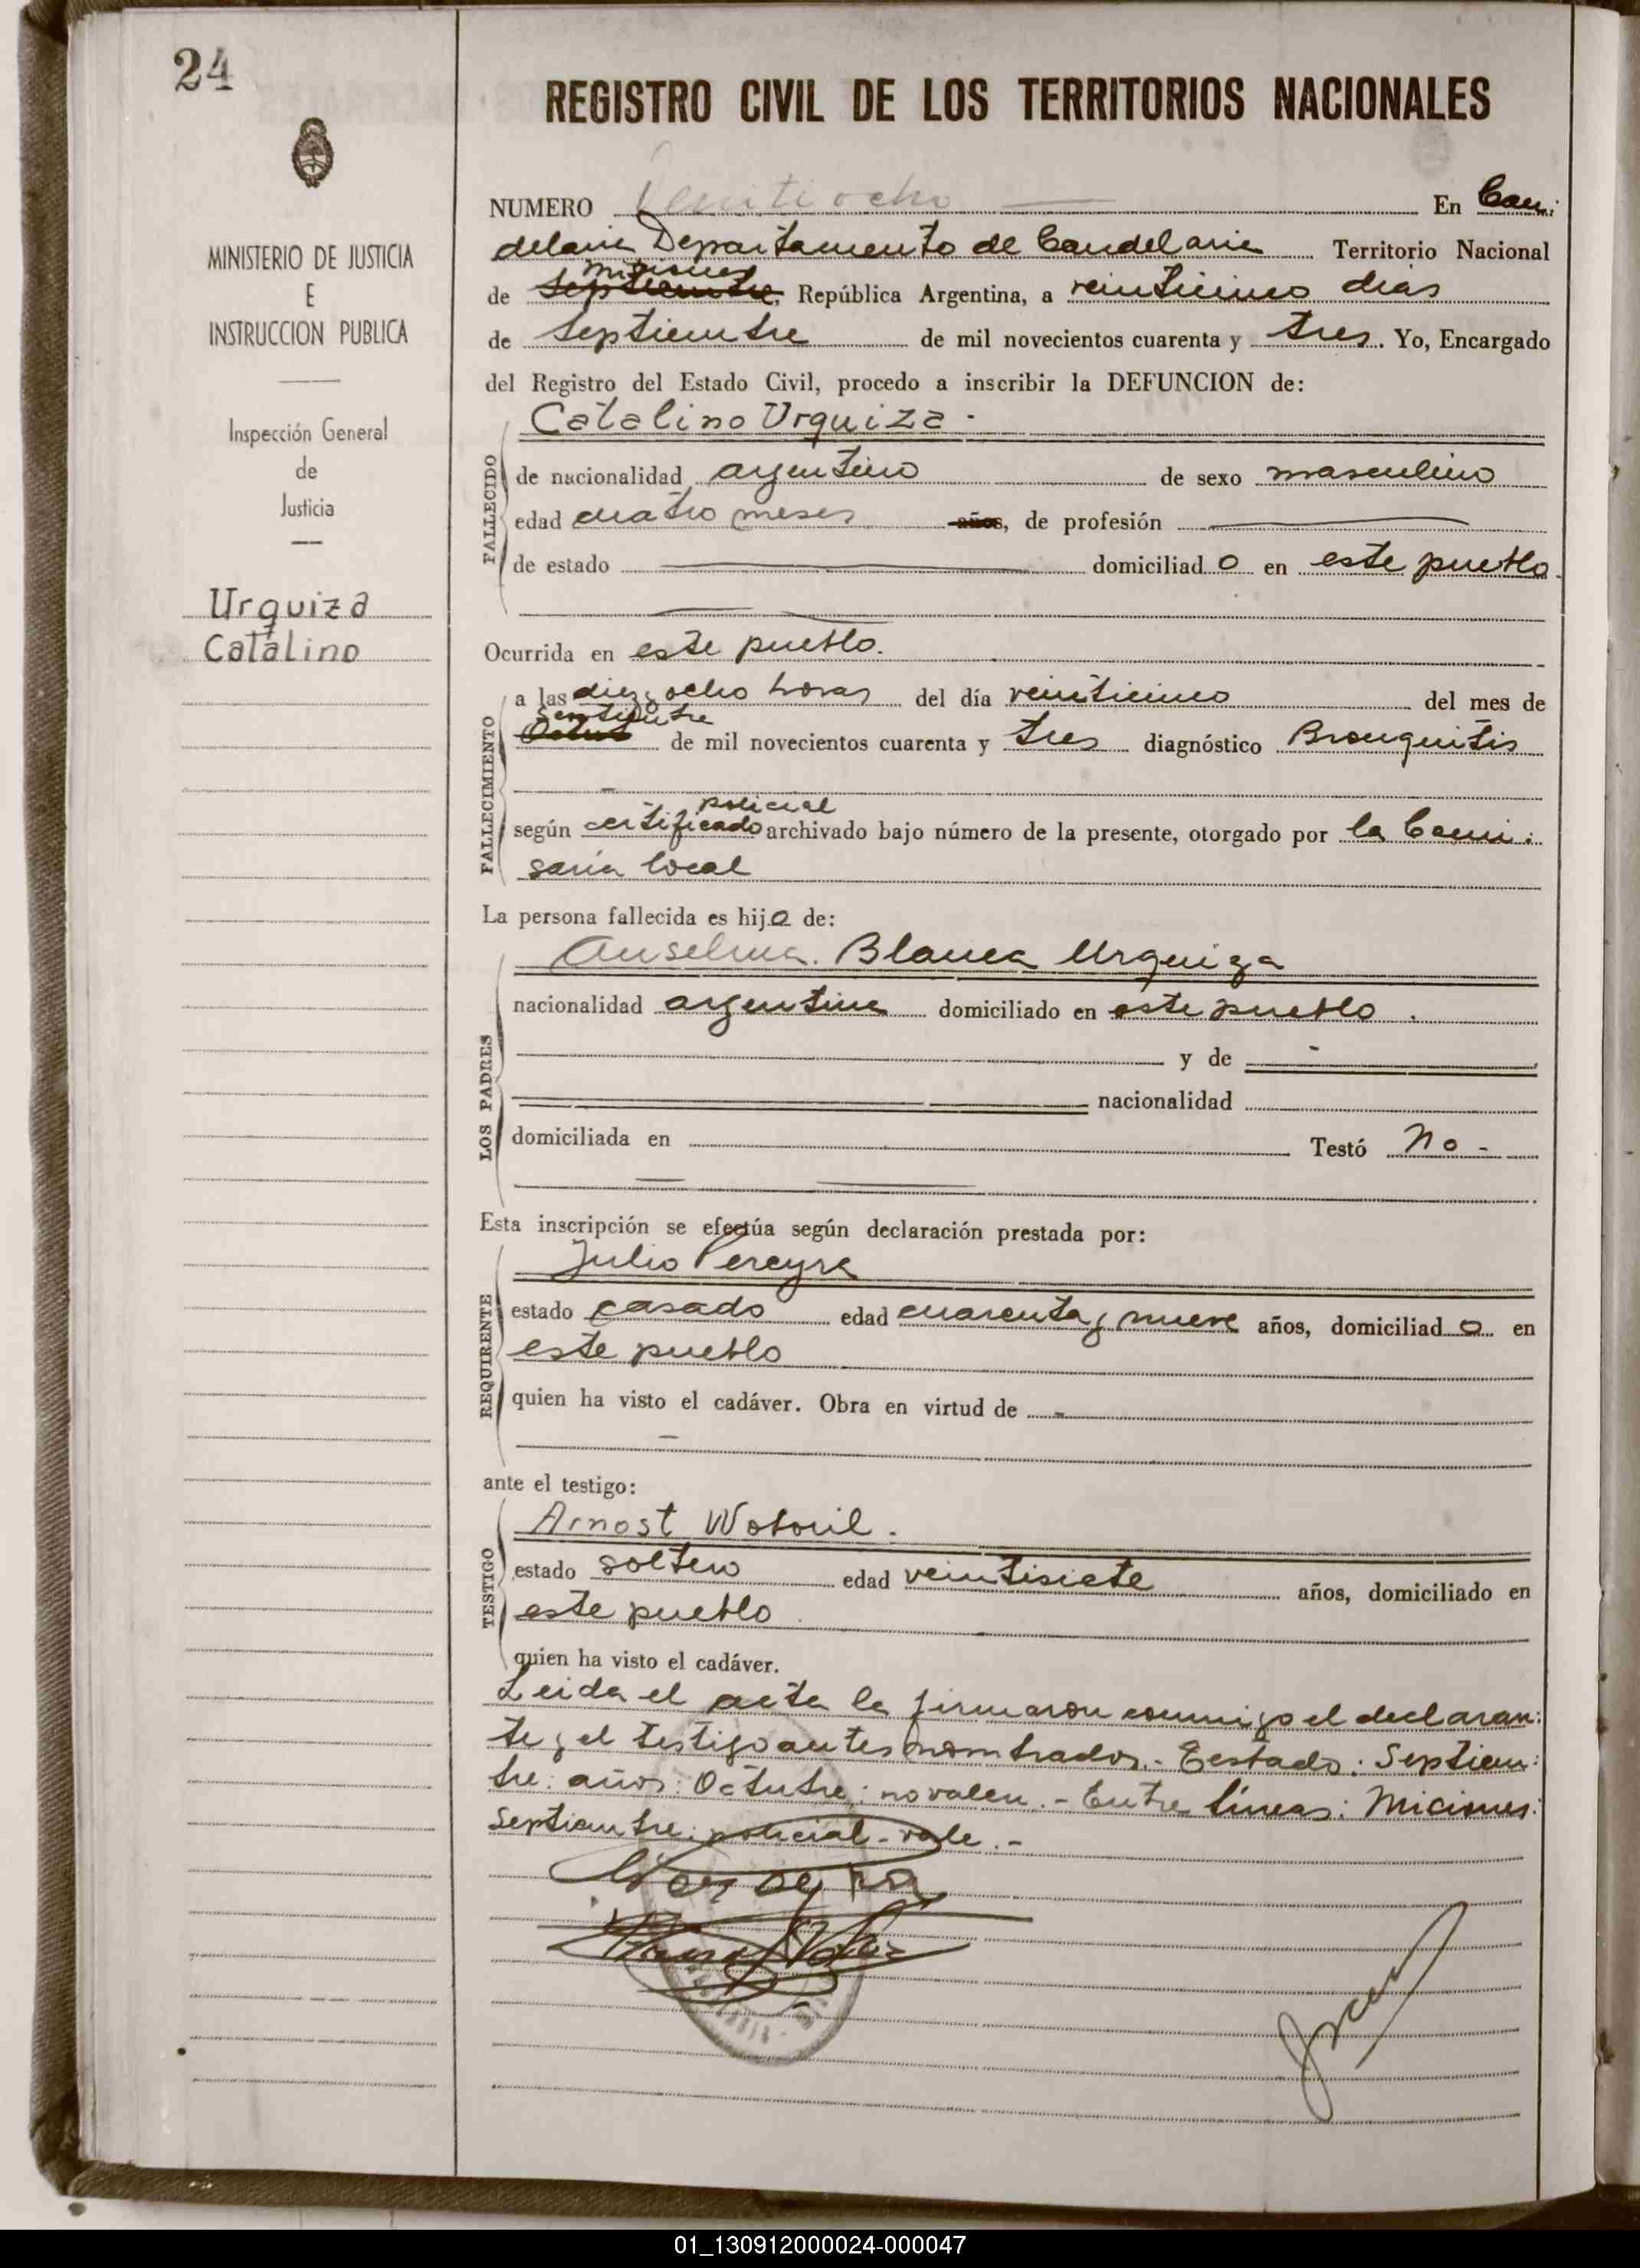 24
REGISTRO CIVIL DE LOS TERRITORIOS NACIONALES
MINISTERIO DE JUSTICIA
E
INSTRUCCION PUBLICA
Inspección General
de
Justicia
Urquiza
Catalino
NUMERO Veintiocho En Can:
delaria Departamento de Candelaria Territorio Nacional
Misiones
de Septiembre, República Argentina, a veinticinco dias
de Septiembre de mil novecientos cuarenta y tres. Yo, Encargado
del Registro del Estado Civil, procedo a inscribir la DEFUNCION de:
Catalino Urquiza -
FALLECIDO
de nacionalidad argentino de sexo masculino
edad cuatro meses años, de profesión
de estado domiciliad o en este pueblo.
Ocurrida en este pueblo.
FALLECIMIENTO
a las diez y ocho horas del día veinticinco del mes de
Septiembre
Octub de mil novecientos cuarenta y tres diagnóstico Bronquitis
policial
según certificado archivado bajo número de la presente, otorgado por la Comi:
saria local
La persona fallecida es hijo de:
LOS PADRES
Anselma. Blanca Urquiza
nacionalidad argentina domiciliado en este pueblo.
y de -
nacionalidad
domiciliada en Testó No -
Esta inscripción se efectúa según declaración prestada por:
REQUIRENTE
Julio Pereyra
estado casado edad cuarenta y nueve años, domiciliad o en
este pueblo
quien ha visto el cadáver. Obra en virtud de -
ante el testigo:
TESTIGO
Arnost Woboril.
estado soltero edad veintisiete años, domiciliado en
este pueblo.
quien ha visto el cadáver.
Leida el acta la firmaron conmigo el declaran:
te y el testigo antes nombrados.- Testado: Septiem:
bre: años: Octubre: no valen.- Entre líneas: Miciones:
Septiembre: policial - vale.-
01_130912000024-000047